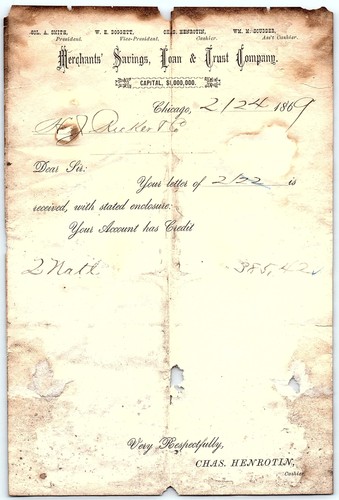 SOL. A. SMITH, W. E. DOGGETT, CHAS. HENROTIN, WM. M. SCUDDER,
President. Vice-President. Cashier. Ass't Cashier.
Merchants' Savings, Loan & Trust Company.
CAPITAL, $1,000,000.
Chicago, 2/24 1869
H. J. Ricker & Co
Dear Sir:
Your letter of 2/22 is
received, with stated enclosure:
Your Account has Credit
2 Natl 385,42
Very Respectfully,
CHAS. HENROTIN,
Cashier